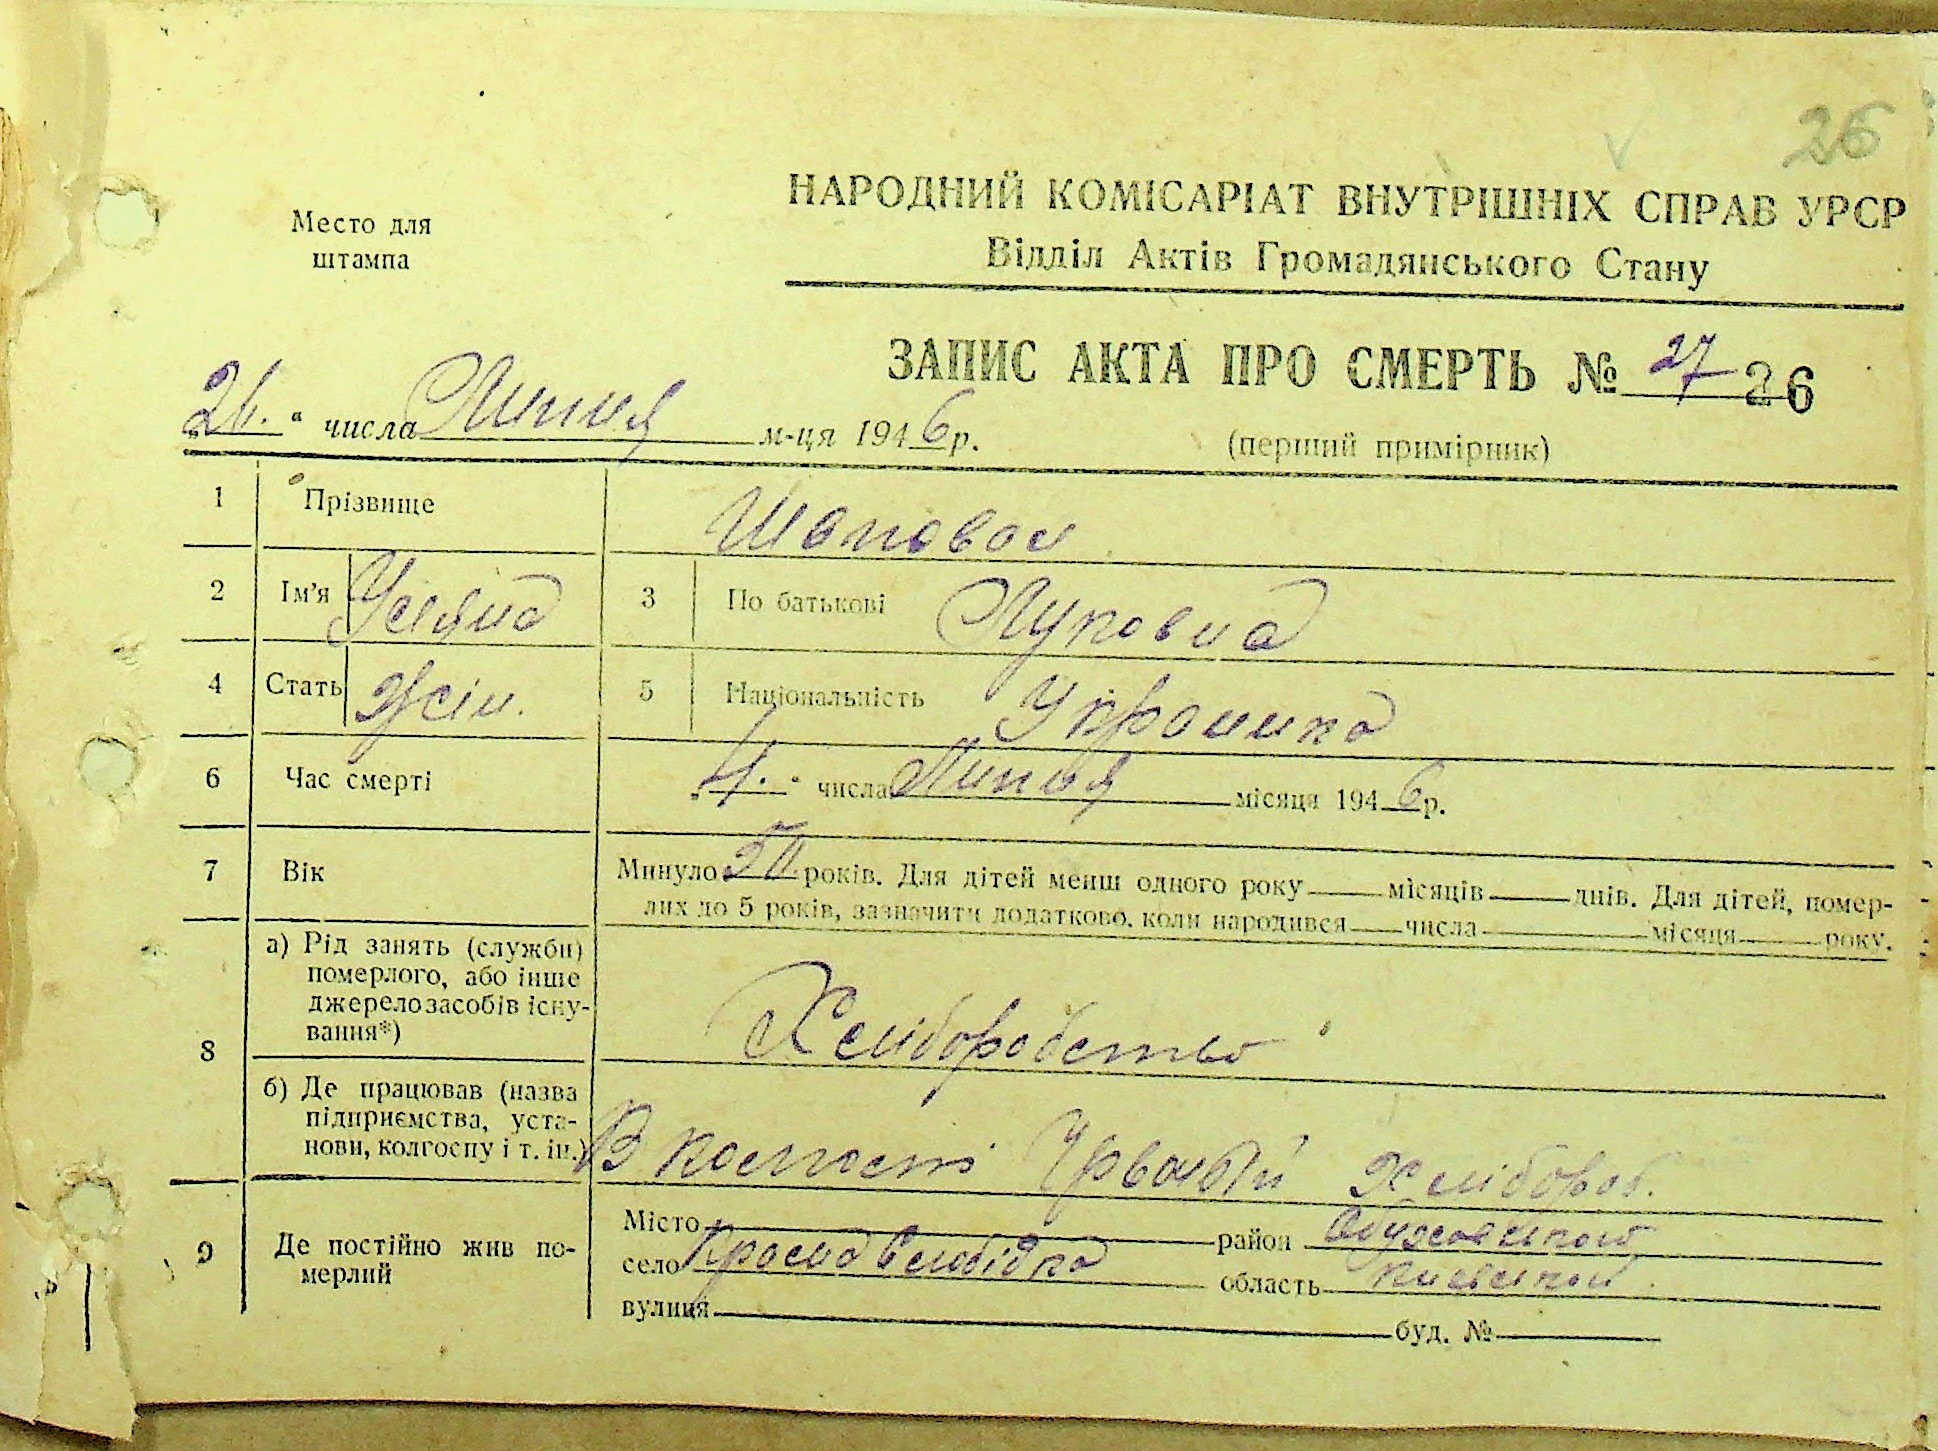 26
Место для
штампа
НАРОДНИЙ КОМІСАРІАТ ВНУТРІШНІХ СПРАВ УРСР
Відділ Актів Громадянського Стану
ЗАПИС АКТА ПРО СМЕРТЬ № 27 26
„26.“ числа Липня м-ця 1946 р.
(перший примірник)
1 Прізвище Шаповал
2 Ім'я Уляна 3 По батькові Луковна
4 Стать Жін. 5 Національність Українка
6 Час смерті „4.“ числа Липня місяця 1946 р.
7 Вік Минуло 50 років. Для дітей менш одного року місяців днів. Для дітей, помер-
лих до 5 років, зазначити додатково, коли народився числа місяця року.
8 а) Рід занять (служби)
померлого, або інше
джерело засобів існу-
вання*) Хліборобство
б) Де працював (назва
підприємства, уста-
нови, колгоспу і т. ін.) В колгоспі Хлібороб.
9 Де постійно жив по-
мерлий
Місто район Обуховський
село Красна Слобідка область Київській.
вулиця буд. №